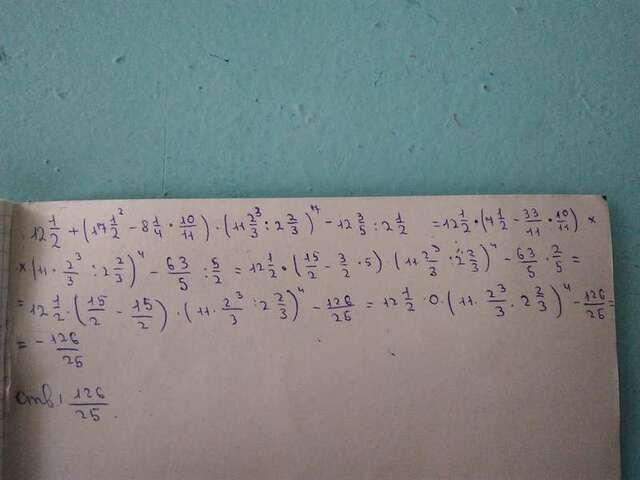 12 1/2 + (17 1/2² - 8 1/4 · 10/11) · (11 2³/3 : 2 2/3)⁴ - 12 3/5 : 2 1/2 = 12 1/2 · (7 1/2 - 33/11 · 10/11) ×
× (11 · 2³/3 : 2 2/3)⁴ - 63/5 : 5/2 = 12 1/2 · (15/2 - 3/2 · 5) · (11 2³/3 : 2 2/3)⁴ - 63/5 · 2/5 =
= 12 1/2 · (15/2 - 15/2) · (11 · 2³/3 : 2 2/3)⁴ - 126/25 = 12 1/2 · 0 · (11 · 2³/3 · 2 2/3)⁴ - 126/25 =
= - 126/25
Отв: 126/25.